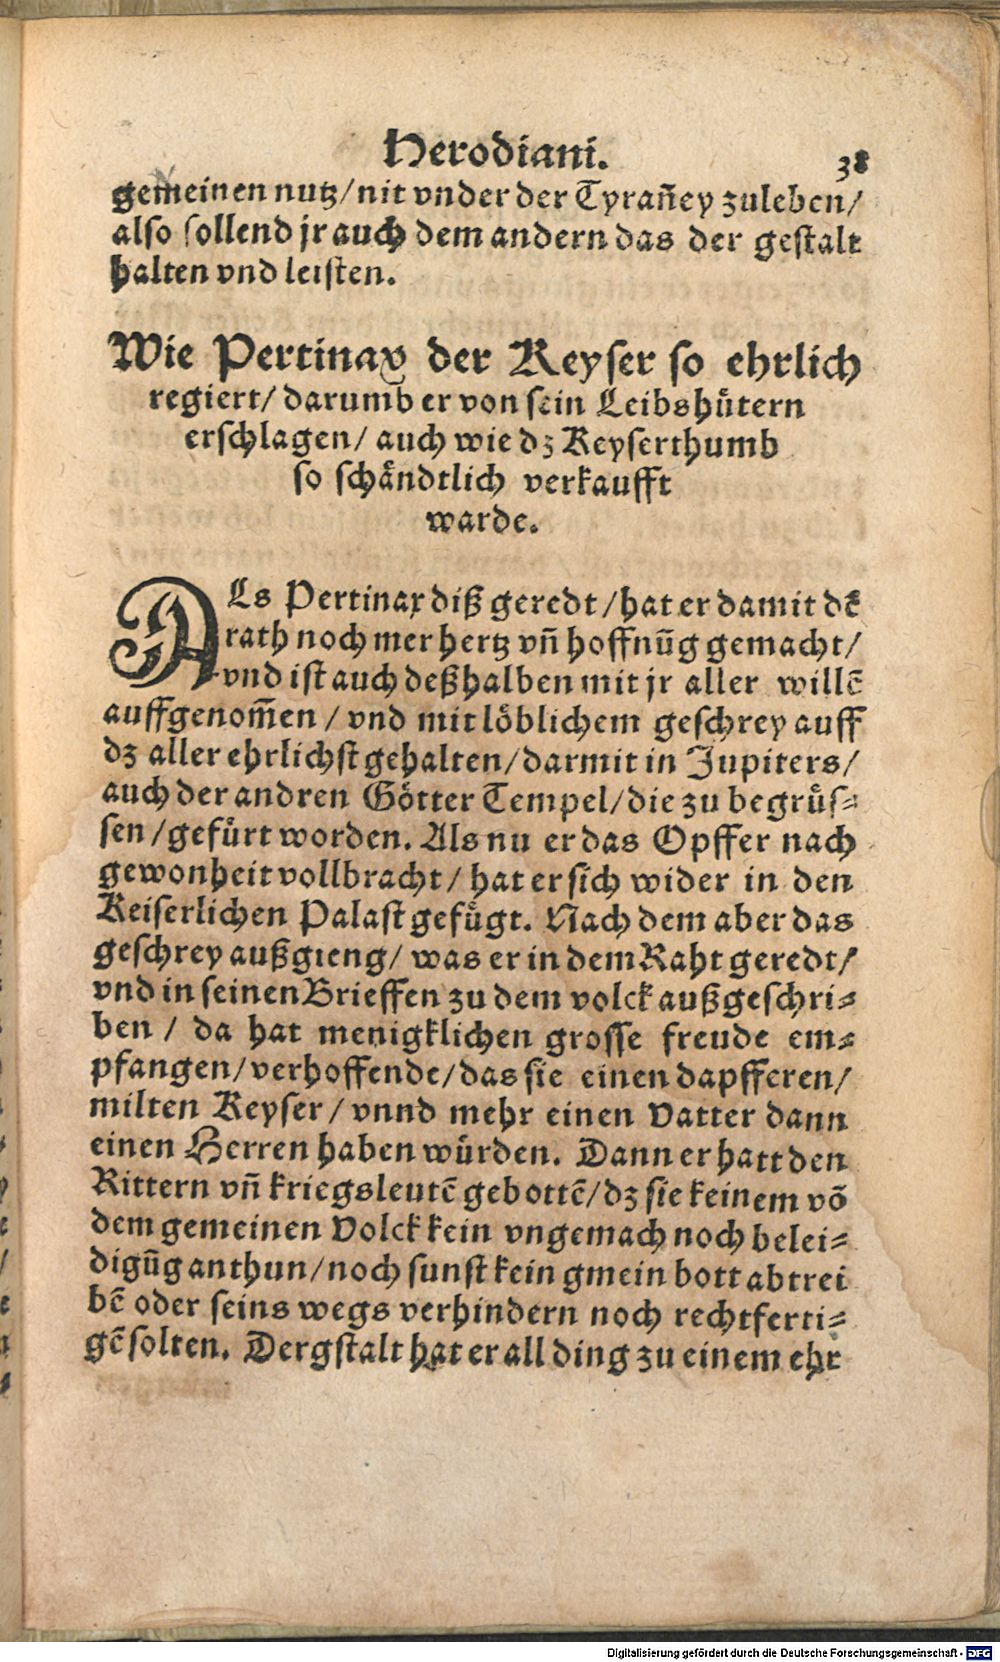 Herodiani. 38
gemeinen nutz/nit vnder der Tyrañey zuleben/
also sollend jr auch dem andern das der gestalt
halten vnd leisten.
Wie Pertinax der Keyser so ehrlich
regiert/ darumb er von sein Leibshuͤtern
erschlagen/ auch wie dz Keyserthumb
so schaͤndtlich verkaufft
warde.
ALs Pertinax diß geredt/hat er damit dē
rath noch mer hertz vñ hoffnūg gemacht/
vnd ist auch deßhalben mit jr aller willē
auffgenom̄en/ vnd mit loͤblichem geschrey auff
dz aller ehrlichst gehalten/darmit in Jupiters/
auch der andren Goͤtter Tempel/die zu begruͤs⸗
sen/gefuͤrt worden. Als nu er das Opffer nach
gewonheit vollbracht/ hat er sich wider in den
Keiserlichen Palast gefuͤgt. Nach dem aber das
geschrey außgieng/ was er in dem Raht geredt/
vnd in seinen Brieffen zu dem volck außgeschri⸗
ben/ da hat menigklichen grosse freude em⸗
pfangen/verhoffende/das sie einen dapfferen/
milten Keyser/ vnnd mehr einen Vatter dann
einen Herren haben wuͤrden. Dann er hatt den
Rittern vñ kriegsleutē gebottē/dz sie keinem võ
dem gemeinen Volck kein vngemach noch belei⸗
digūg anthun/noch sunst kein gmein bott abtrei
bē oder seins wegs verhindern noch rechtferti⸗
gē solten. Dergstalt hat er all ding zu einem ehr
Digitalisierung gefördert durch die Deutsche Forschungsgemeinschaft - DFG